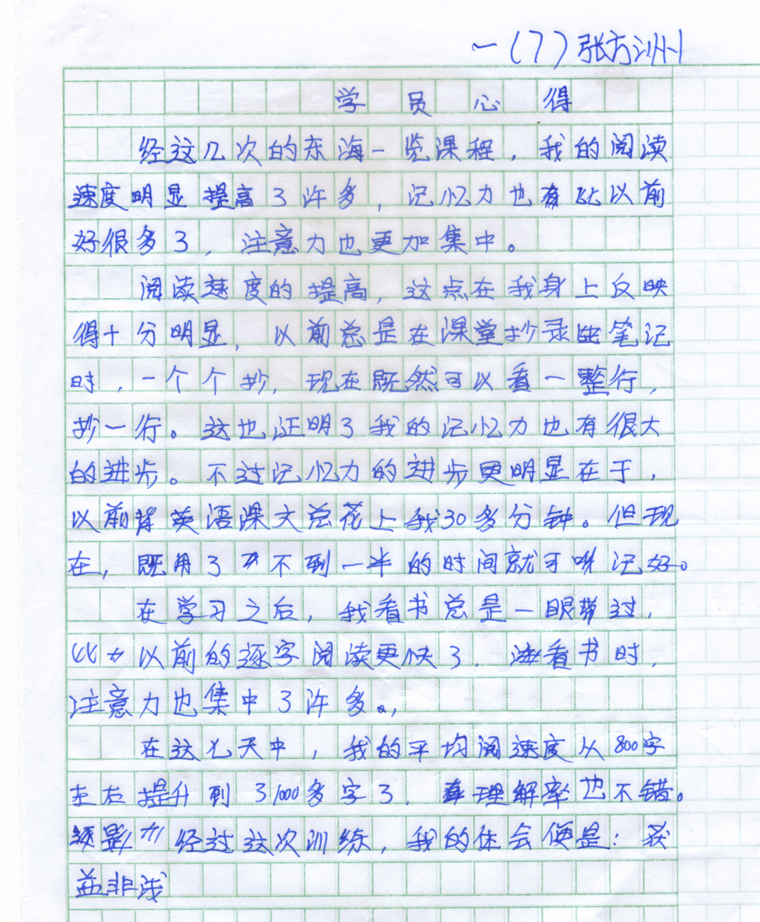 一(7)张方洲
学员心得
经这几次的东海一览课程，我的阅读
速度明显提高了许多，记忆力也有比以前
好很多了，注意力也更加集中。
阅读速度的提高，这点在我身上反映
得十分明显，以前总是在课堂抄录笔记
时，一个个抄，现在既然可以看一整行，
抄一行。这也证明了我的记忆力也有很大
的进步。不过记忆力的进步更明显在于，
以前背英语课文总花上我30多分钟。但现
在，既用了不到一半的时间就可以记好。
在学习之后，我看书总是一眼带过，
比以前的逐字阅读更快了．看书时，
注意力也集中了许多。
在这几天中，我的平均阅速度从800字
左右提升到了1000多字了．理解率也不错。
经过这次训练，我的体会便是：获
益非浅